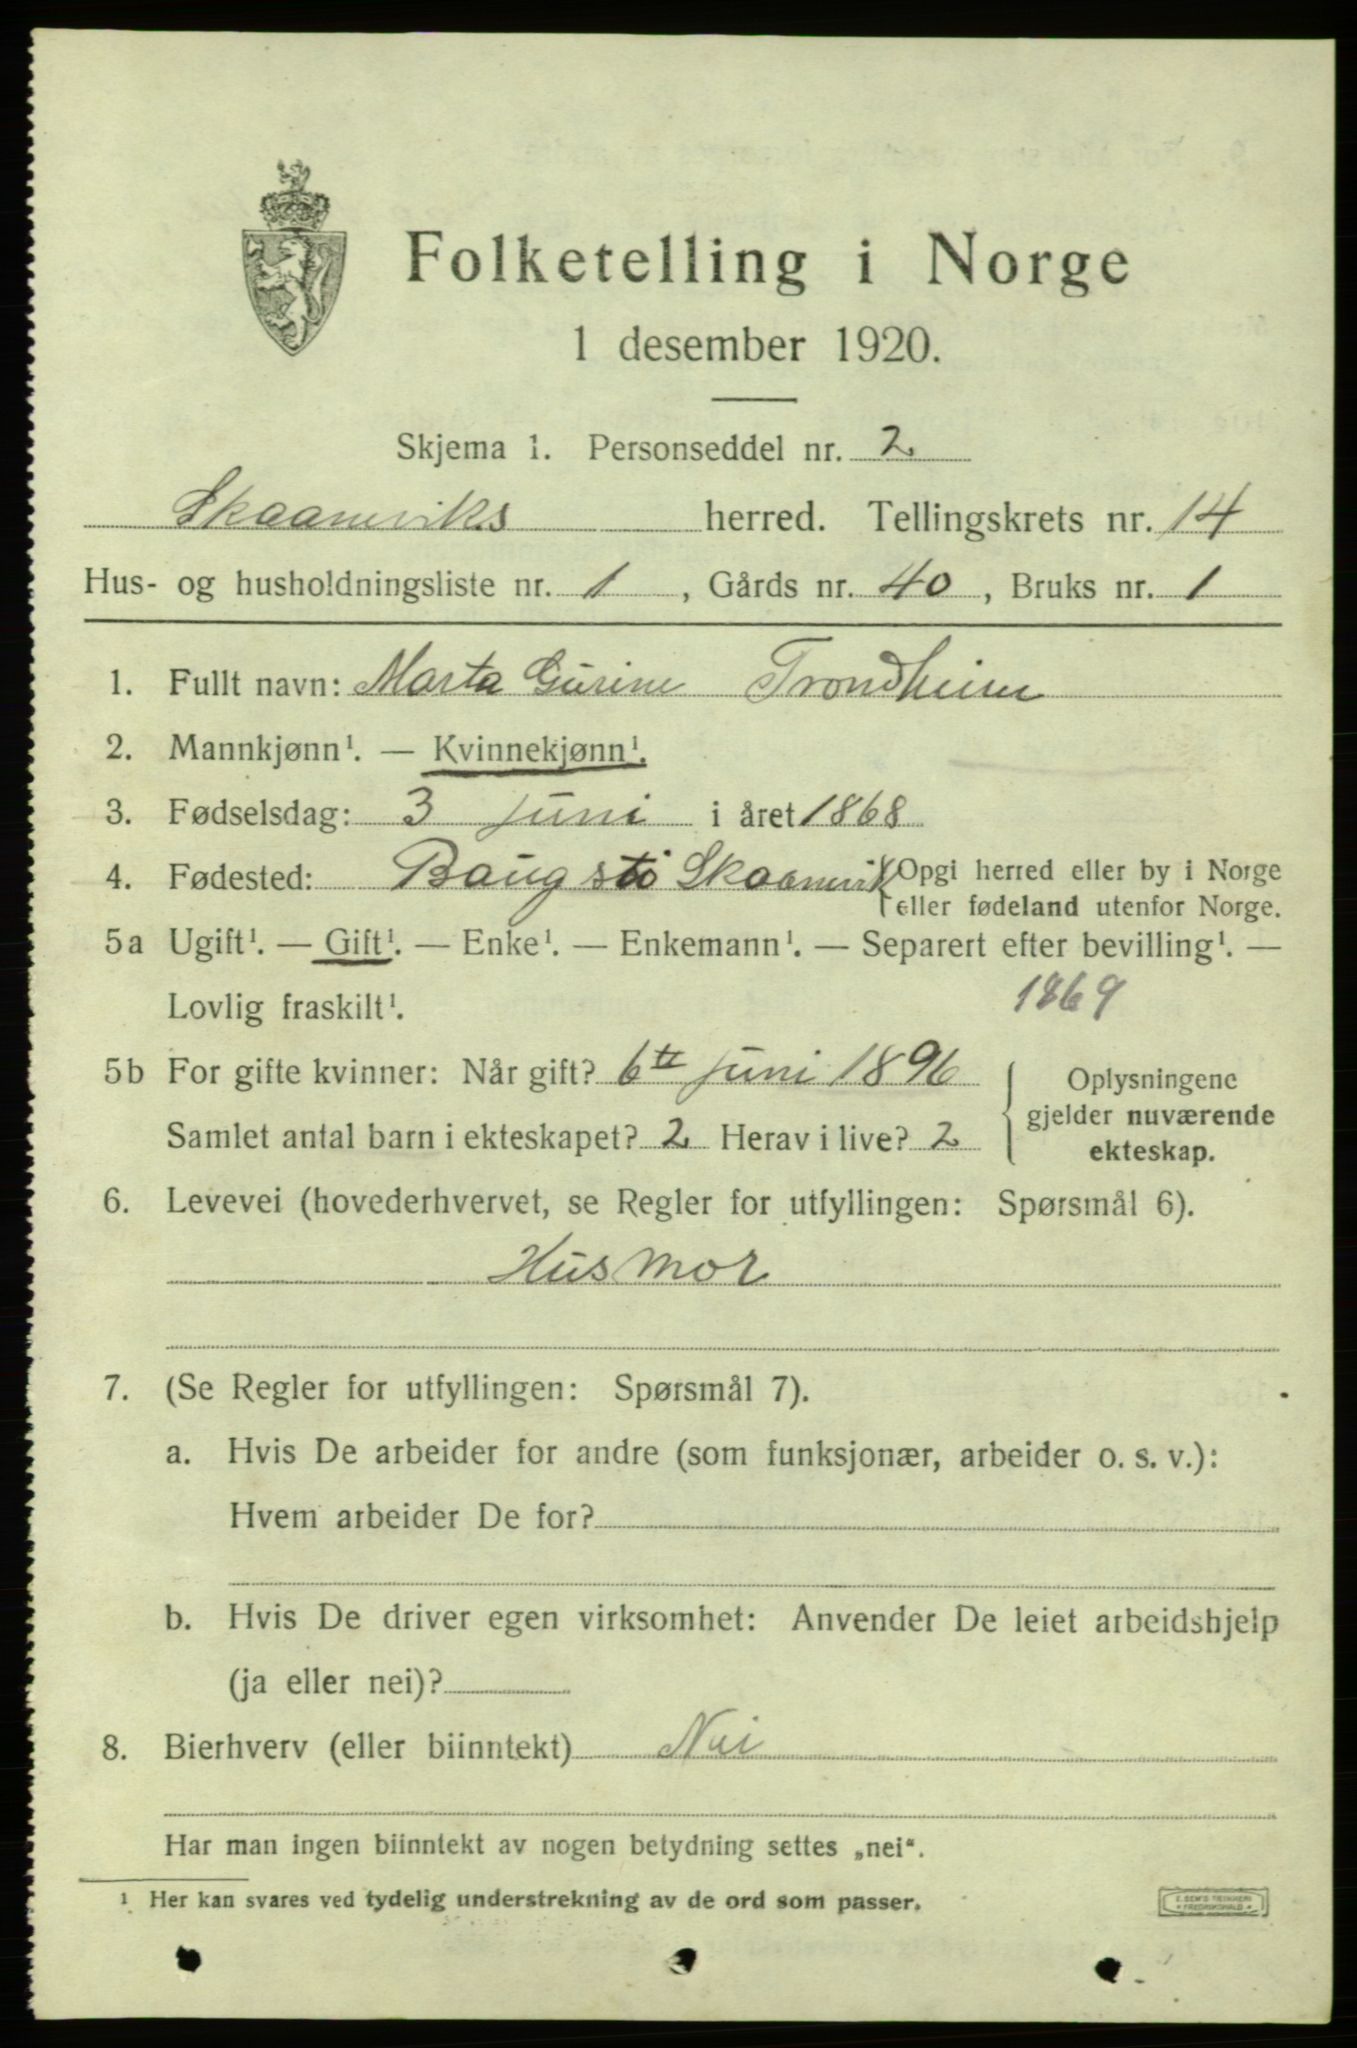 Folketelling i Norge
1 desember 1920.
Skjema 1. Personseddel nr. 2
Skaaneviks herred. Tellingskrets nr. 14
Hus- og husholdningsliste nr. 1, Gårds nr. 40, Bruks nr. 1
1. Fullt navn: Marta Gurine Trondheim
2. Mannkjønn¹. — Kvinnekjønn¹.
3. Fødselsdag: 3 juni i året 1868
4. Fødested: Baugstø Skaanevik { Opgi herred eller by i Norge
eller fødeland utenfor Norge.
5a Ugift¹. — Gift¹. — Enke¹. — Enkemann¹. — Separert efter bevilling¹. —
Lovlig fraskilt¹. 1869
5b For gifte kvinner: Når gift? 6te juni 1896
Samlet antal barn i ekteskapet? 2 Herav i live? 2
Oplysningene
gjelder nuværende
ekteskap.
6. Levevei (hovederhvervet, se Regler for utfyllingen: Spørsmål 6).
Husmor
7. (Se Regler for utfyllingen: Spørsmål 7).
a. Hvis De arbeider for andre (som funksjonær, arbeider o. s. v.):
Hvem arbeider De for?
b. Hvis De driver egen virksomhet: Anvender De leiet arbeidshjelp
(ja eller nei)?
8. Bierhverv (eller biinntekt) Nei
Har man ingen biinntekt av nogen betydning settes „nei“.
¹ Her kan svares ved tydelig understrekning av de ord som passer.